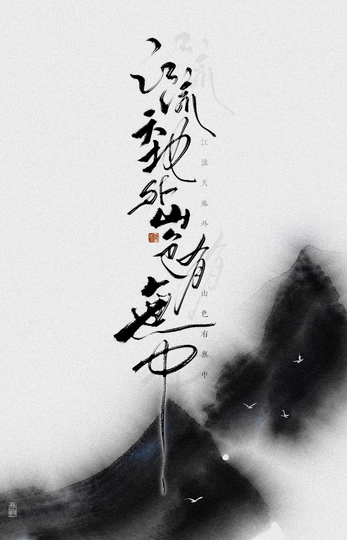 江流天地外山色有無中
江流天地外
山色有無中